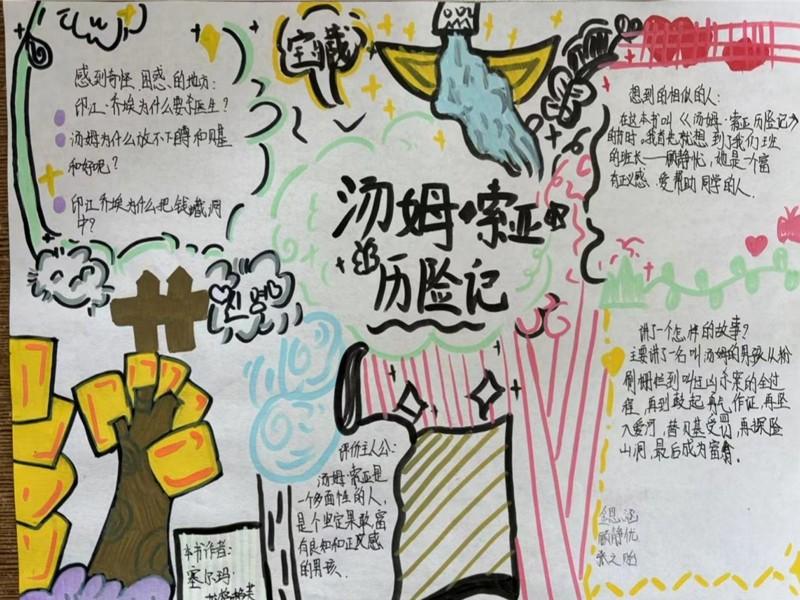 感到奇怪、困惑、的地方:
印江·乔埃为什么要杀医生?
汤姆为什么放不下蹲和贝基
和好呢?
印江乔埃为什么把钱藏洞
中?
宝藏
汤姆·索亚
历险记
想到的相似的人:
在这本书叫《汤姆·索亚历险记》
的时,我首先就想到了我们班
的班长——顾静忧,她是一个富
有正义感、爱帮助同学的人.
讲了一个怎样的故事?
主要讲了一名叫汤姆的男孩从粉
刷栅栏到叫过山杀案的全过
程,再到鼓起勇气作证,再坠
入爱河,替贝基受罚,再探险
山洞,最后成为富翁.
评价主人公:
汤姆·索亚是
一个多面性的人,
是个坚定果敢,富
有良知和正义感
的男孩.
本书作者:
塞尔玛·
顾静优